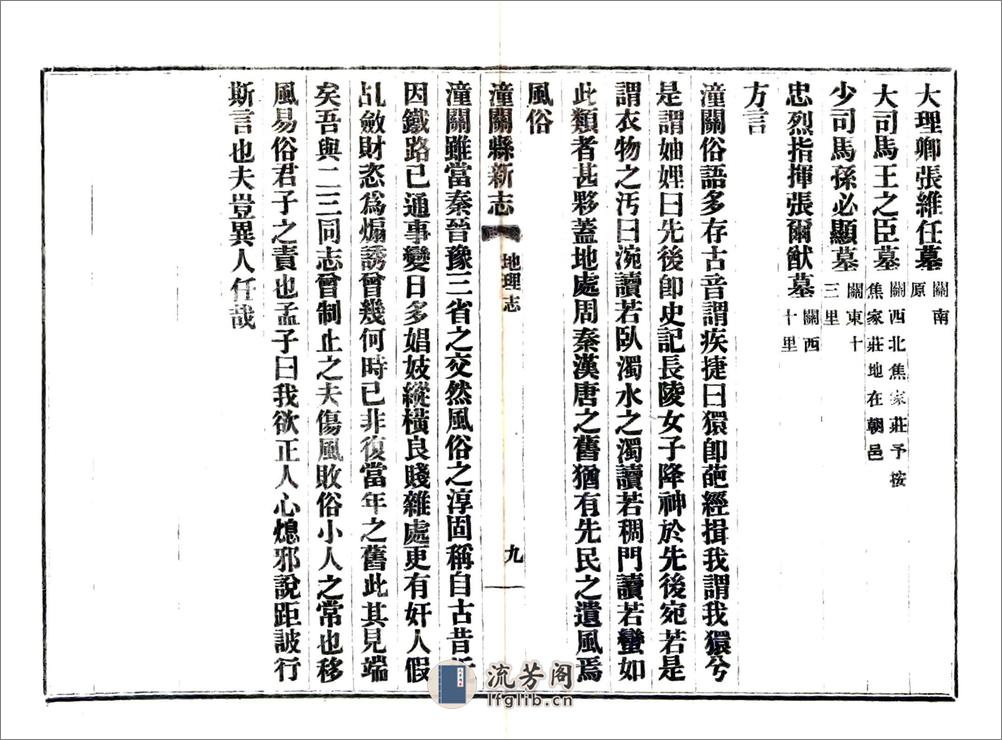 大理卿張維任墓 關南原
大司馬王之臣墓 關西北焦家莊予按焦家莊地在朝邑
少司馬孫必顯墓 關東十三里
忠烈指揮張爾猷墓 關西十里
方言
潼關俗語多存古音謂疾捷曰獧卽葩經揖我謂我獧兮
是謂妯娌曰先後卽史記長陵女子降神於先後宛若是
謂衣物之汚曰涴讀若臥濁水之濁讀若稠門讀若蠻如
此類者甚夥蓋地處周秦漢唐之舊猶有先民之遺風焉
風俗
潼關縣新志 地理志 九
潼關雖當秦晉豫三省之交然風俗之淳固稱自古昔
因鐵路已通事變日多娼妓縱橫良賤雜處更有奸人假
乩斂財恣爲煽誘曾幾何時已非復當年之舊此其見端
矣吾與二三同志曾制止之夫傷風敗俗小人之常也移
風易俗君子之責也孟子曰我欲正人心熄邪說距詖行
斯言也夫豈異人任哉
流芳阁
lfglib.cn